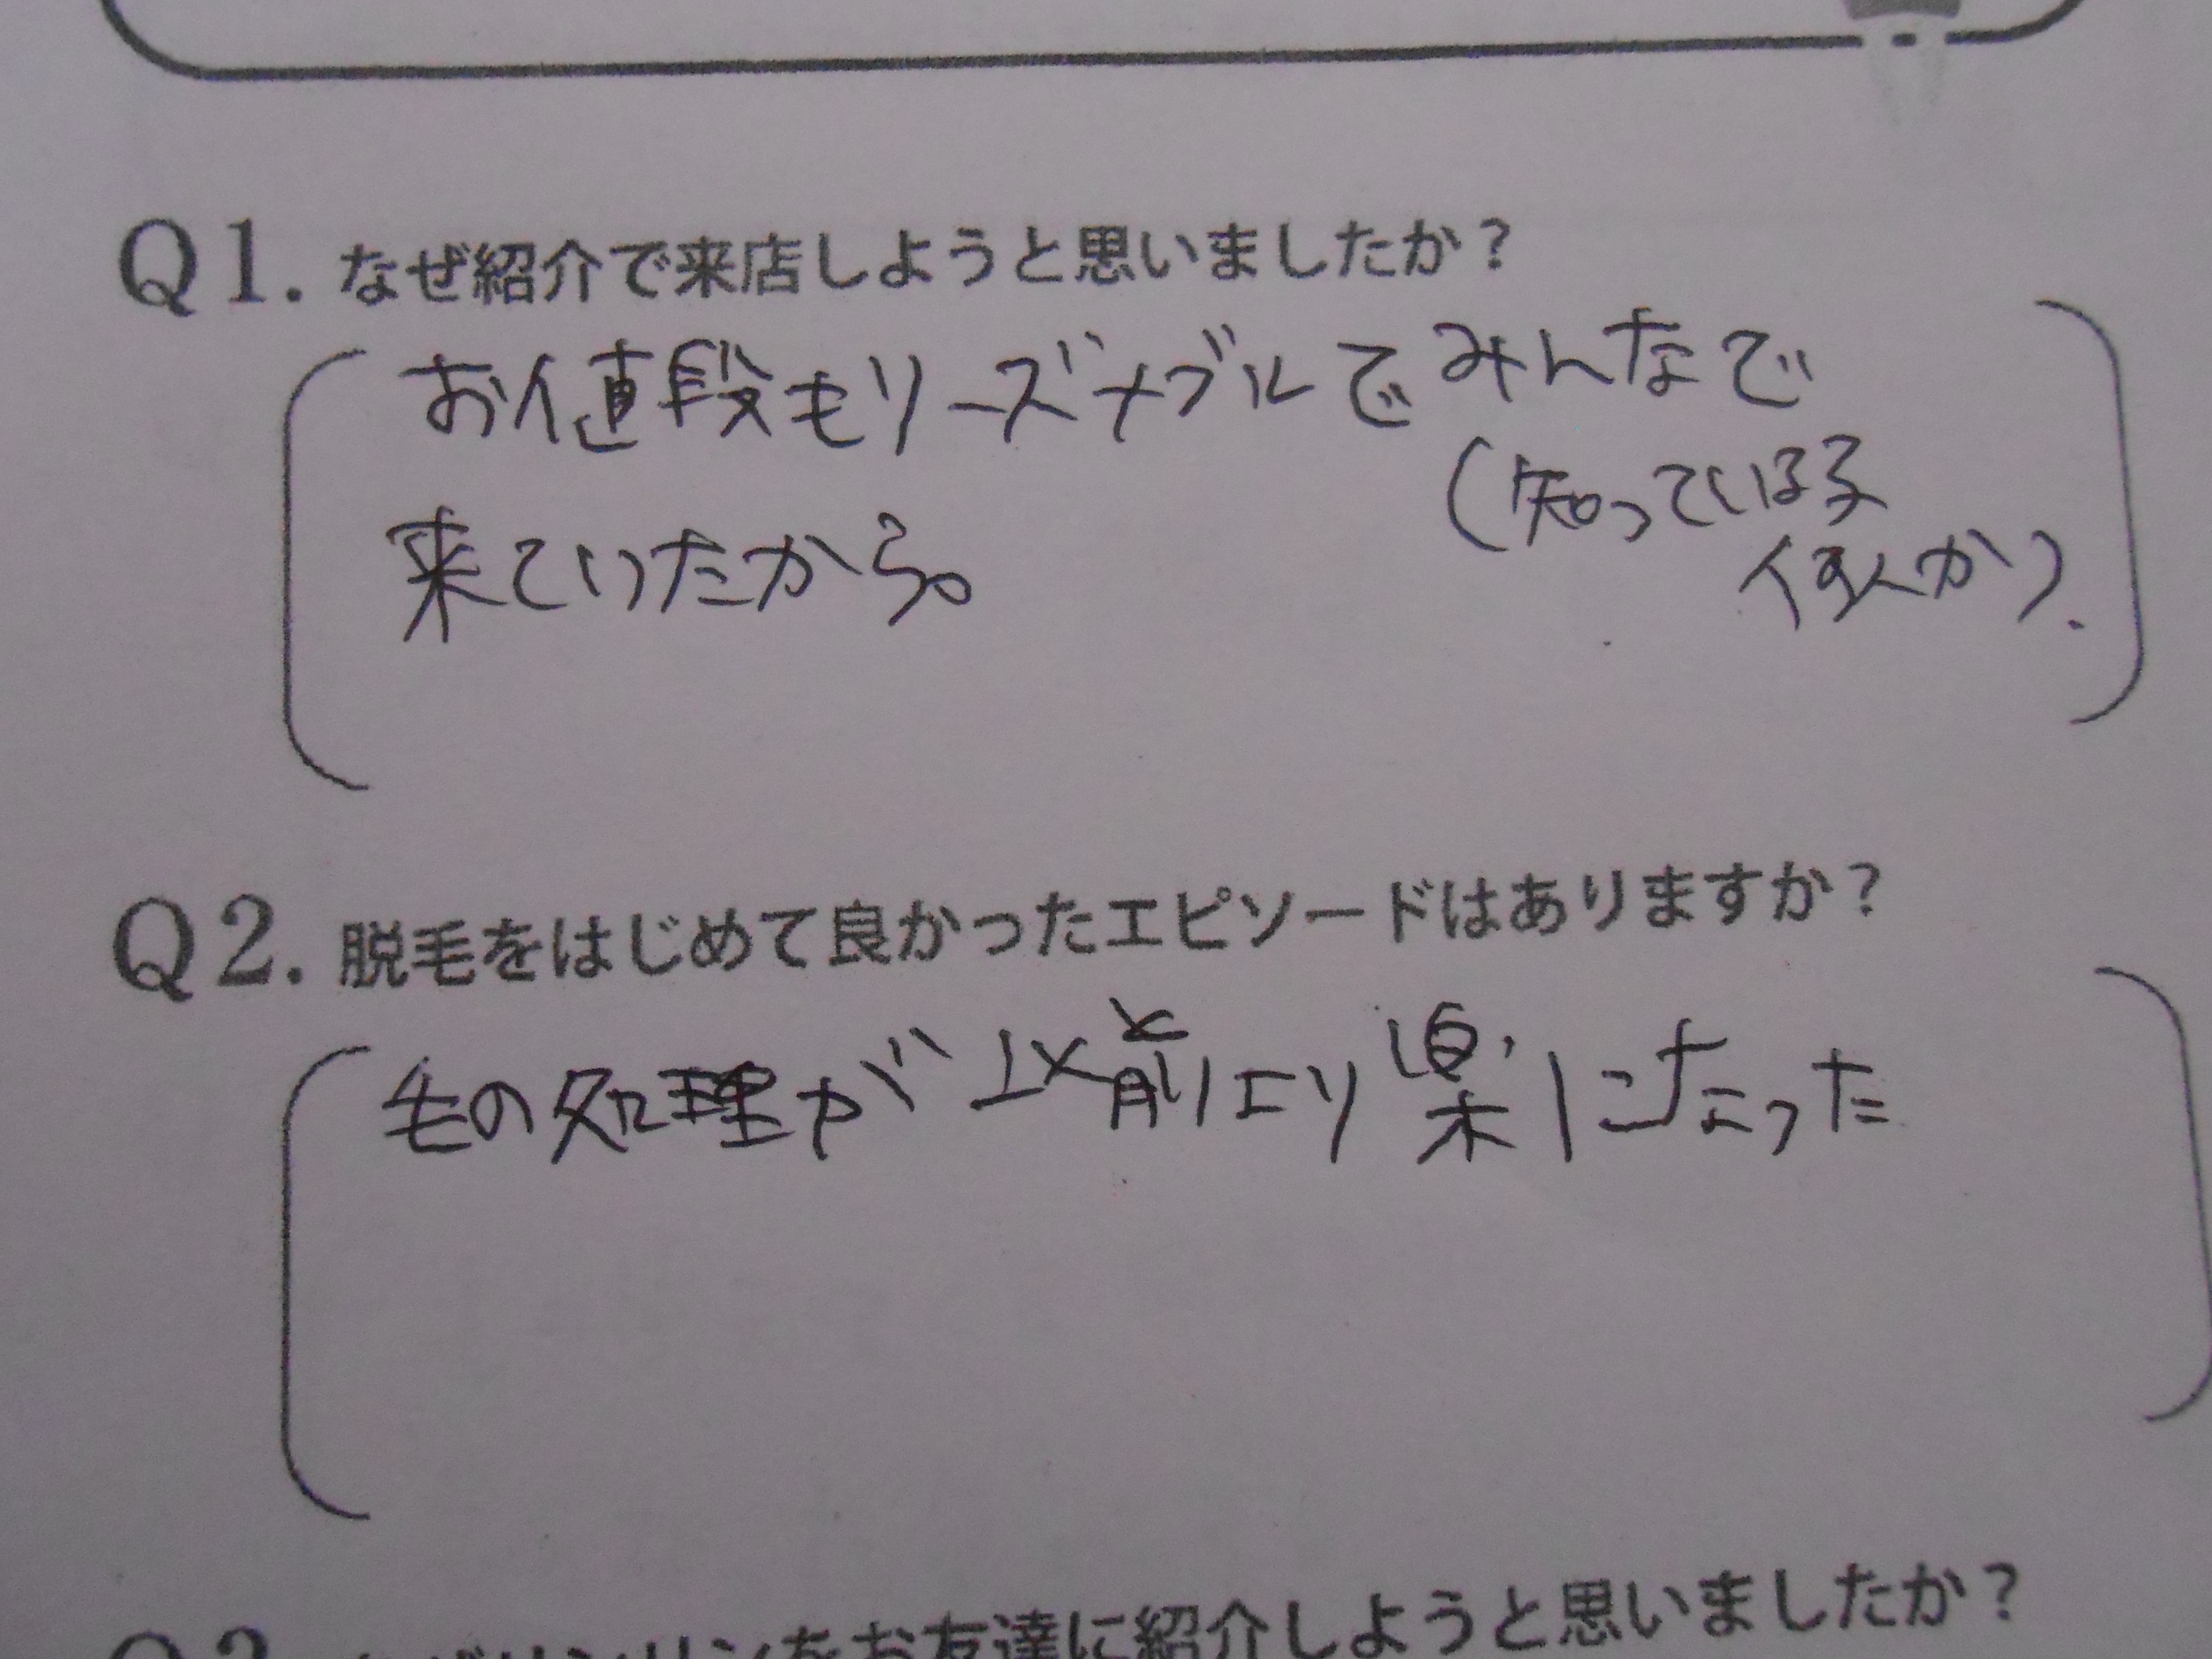 Q1. なぜ紹介で来店しようと思いましたか？
お値段もリーズナブルでみんなで
(知っている子
何人か).
来ていたから。
Q2. 脱毛をはじめて良かったエピソードはありますか？
毛の処理が以前より楽になった
をお友達に紹介しようと思いましたか？